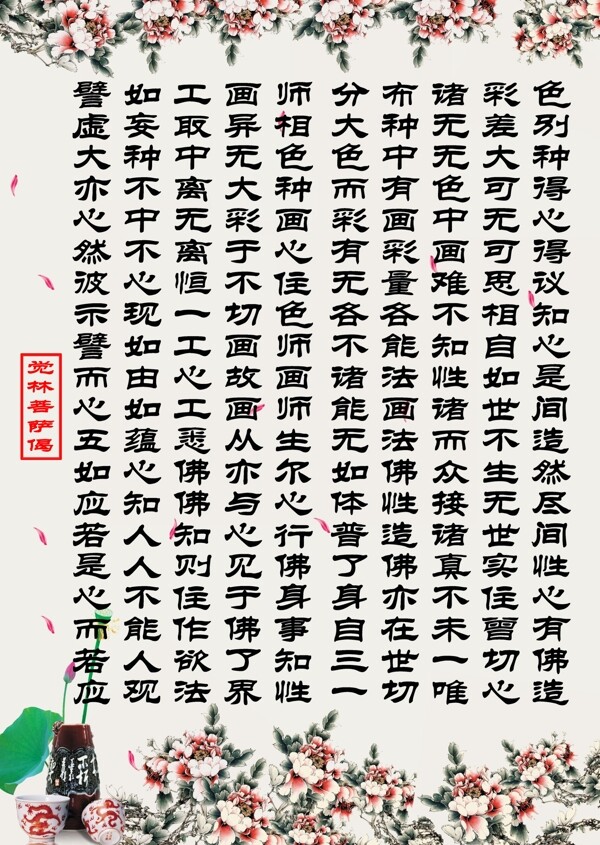 譬如工画师分布诸彩色
虚妄取异相大种无差别
大种中无色色中无大种
亦不离大种而有色可得
心中无彩画彩画中无心
然不离于心有彩画可得
彼心恒不住无量难思议
示现一切色各各不相知
譬如工画师不能知自心
而由心故画诸法性如是
心如工画师能画诸世间
五蕴悉从生无法而不造
如心佛亦尔如佛众生然
应知佛与心体性接无尽
若人知心行普造诸世间
是人则见佛了佛真实性
心不住于身身亦不住心
而能作佛事自在未曾有
若人欲了知三世一切佛
应观法界性一切唯心造
觉林菩萨偈